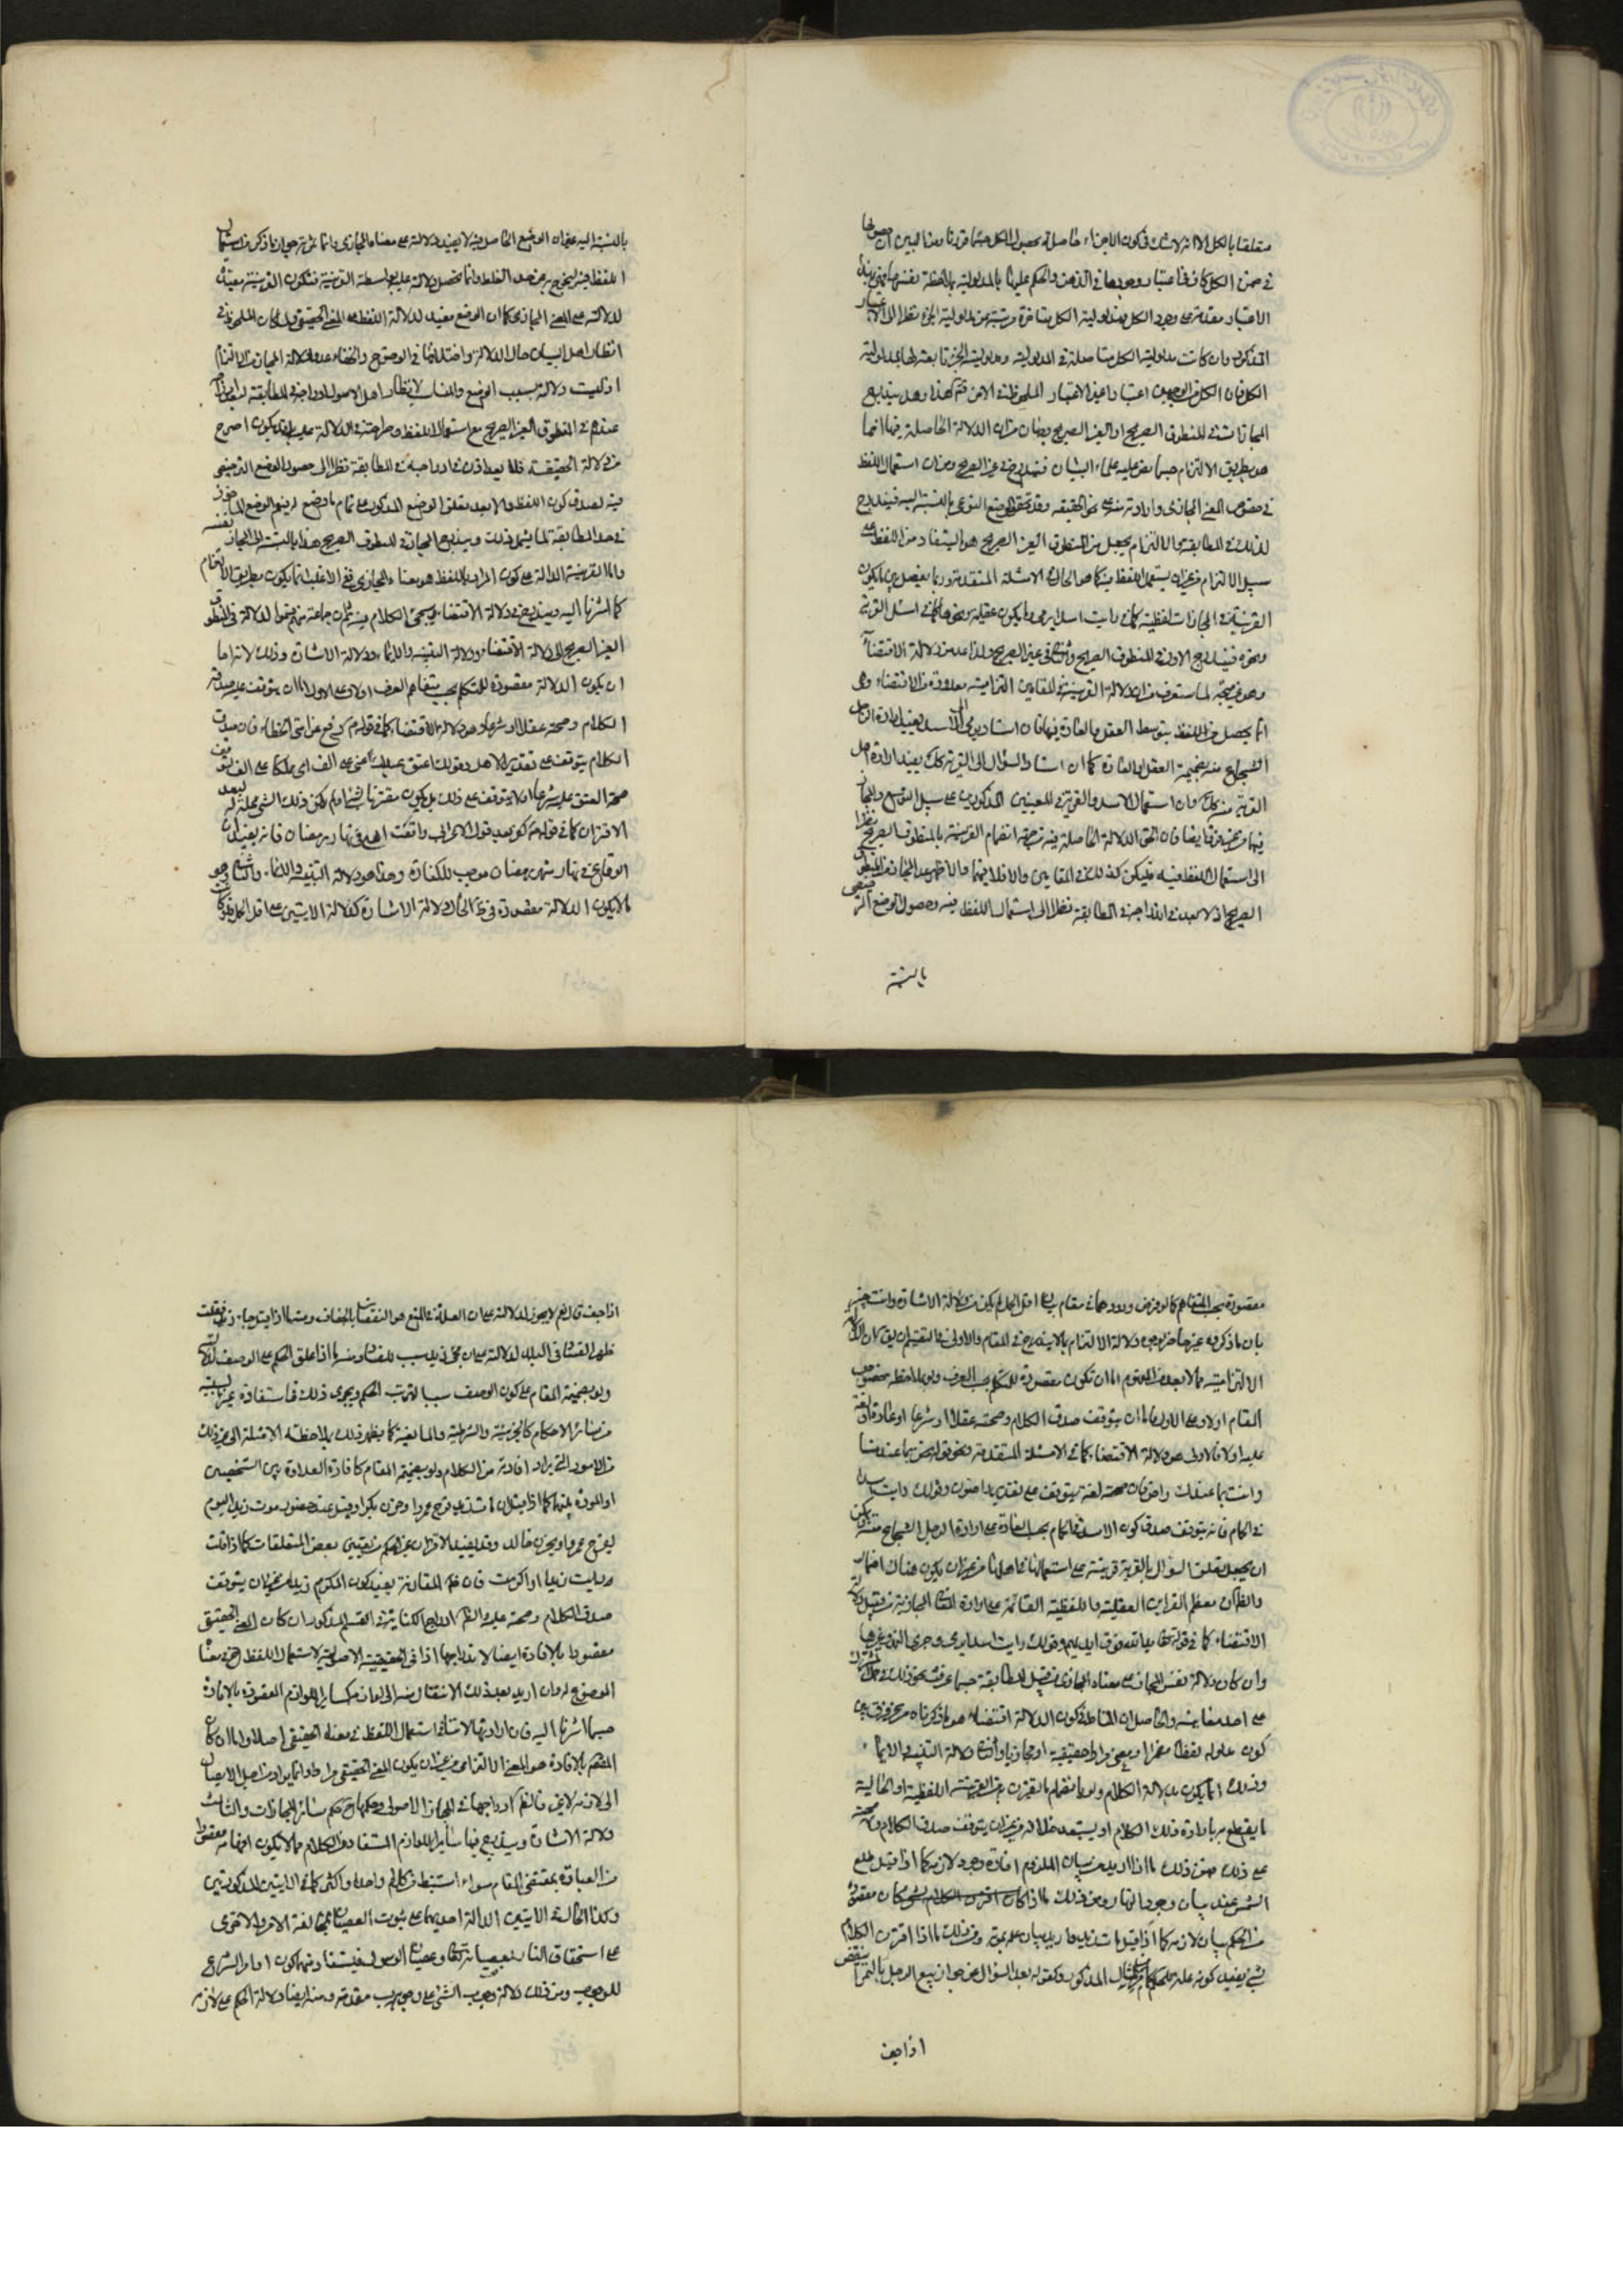 متعلقا بالكل الا انه لا شك في كون الاجزاء حاصلة بحصول الكل
في ضمن الكل كاف في اعتبار وجودها في الذهن والحكم عليها بالمدلولية بملاحظة نفسها
الاعتبار مقدمة على وجود الكل ومدلولية الكل متاخرة مرتبة عن مدلولية الجزء نظرا الى الاعتبار
المذكور وان كانت مدلولية الكل متاصلة في المدلولية ومدلولية الجزء تابعة لها
الكل فان الكل اعتبارا غير الاعتبار الملحوظ في الاخر فتم هذا وهل يندرج
المجازات في المنطوق الصريح او الغير الصريح وجهان من ان الدلالة الحاصلة فيها انما
هو بطريق الالتزام حسبما نص عليه علماء البيان فيندرج في غير الصريح ومن ان استعمال اللفظ
في خصوص المعنى المجازى وارادته منه على نحو الحقيقة وقد تحقق الوضع النوعى بالنسبة اليه فيندرج
لذلك في المطابقة الالتزام يجعل من المنطوق الغير الصريح هو المستفاد من اللفظ على
سبيل الالتزام من غير ان يستعمل اللفظ فيه كما هو الحال في الامثلة المتقدمة وربما يفصل بين ما يكون
القرينة في المجازات لفظية كما في رايت اسدا يرمى وما يكون عقلية ونحوها كما في اسئل القرية
ونحوه فيندرج الاول في المنطوق الصريح والثانى في غير الصريح ولذا عد من دلالة الاقتضاء
وهو غير متجه لما ستعرف من ان دلالة القرينة في المقامين التزامية معدودة من الاقتضاء وهى
انما يحصل من اللفظ بتوسط العقل والعادة فيهما فان اسناد يرمى الى الاسد يفيد ارادة الرجل
الشجاع منه بضميمة العقل والعادة كما ان اسناد السؤال الى القرية كك يفيد ارادة اهل
القرية منه كك وان استعمال الاسد والقرية في المعنيين المذكورين على سبيل التوسع والمجاز
فيهما من غير فرق ايضا فان الحق الدلالة الحاصلة فيه من جهة انضمام القرينة بالمنطوق الصريح نظرا
الى استعمال اللفظ فيه فليكن كذلك في المقامين والا فلا فيهما والاظهر عد المجاز من المنطوق
الصريح اذ لا بعد في اندراجه في المطابقة نظرا الى استعمال اللفظ فيه وحصول الوضع الترخيصى
بالنسبة
بالنسبة اليه غير ان الوضع الحاصل فيه لا يفيد دلالة على معناه المجازى وانما ثمرته جواز ما ذكر من استعمال
اللفظ فيه ليخرج به عن حد الغلط وانما تحصل دلالة عليه بواسطة القرينة فتكون القرينة مفيدة
لدلالته على المعنى المجازى كما ان الوضع مفيد لدلالة اللفظ على المعنى الحقيقى ولما كان الملحوظ في
انظار اهل البيان حال الدلالة واختلافها في الوضوح والخفاء عدوا دلالة المجاز من الالتزام
اذ ليست دلالة بسبب الوضع والمناسب لانظار اهل الاصول ادراجه في المطابقة
عندهم في المنطوق الغير الصريح مع استعمال اللفظ وصراحته في الدلالة عليه بل قد يكون اصرح
من دلالة الحقيقة فلا بعد اذن في ادراجه في المطابقة نظرا الى حصول الوضع الترخيصى
فيه لصدق كون اللفظ والابعد تعلق الوضع المذكور على تمام ما وضع له بتعميم الوضع الماخوذ
في حد المطابقة لما يشمل ذلك ويندرج المجاز في المنطوق الصريح هذا بالنسبة الى المجاز نفسه
واما القرينة الدالة على كون المراد باللفظ هو معناه المجازى ففى الاغلب انما يكون بطريق الالتزام
كما اشرنا اليه ويندرج في دلالة الاقتضاء وسيجئ الكلام فيه ثم ان جماعة منهم قسموا الدلالة في المنطوق
الغير الصريح الى دلالة الاقتضاء ودلالة التنبيه والايماء ودلالة الاشارة وذلك لانه اما
ان يكون الدلالة مقصودة للمتكلم بحسب متفاهم العرف او لا وعلى الاول اما ان يتوقف عليه صدق
الكلام وصحته عقلا او شرعا وهو دلالة الاقتضاء كما في قوله ع رفع عن امتى الخطاء فان صدق
الكلام يتوقف على تقدير الاهل وقولك اعتق عبدك عنى على الف اى مملكا على الف يتوقف
صحة العتق عليه شرعا او لا يتوقف على ذلك بل يكون مقترنا بشئ لو لم يكن ذلك الشئ علة له لبعد
الاقتران كما في قوله ع كفر بعد قول الاعرابى واقعت اهلى في نهار رمضان فانه يفيد ان
الوقاع في نهار شهر رمضان موجب للكفارة وهذا هو دلالة التنبيه والايماء والثانى وهو
ما لا يكون الدلالة مقصودة في ظ الحال دلالة الاشارة كدلالة الايتين على اقل الحمل
مقصودة بحسب المتفاهم كما لو فرض ورودهما في مقام بيان اقل الحمل لم يكن من دلالة الاشارة وانت خبير
بان ما ذكروه غيرها من وجوه دلالة الالتزام مما لا يندرج في المقام والاولى في التقسيم ان يق ان الدلالة
الالتزامية مما لا يعد من المفهوم اما ان تكون مقصودة للمتكلم بحسب العرف ولو بملاحظة خصوص
المقام او لا وعلى الاول اما ان يتوقف صدق الكلام وصحته عقلا او شرعا او عادة او لغة
عليه او لا فالاول هو دلالة الاقتضاء كما في الامثلة المتقدمة ونحو قوله نحن بما عندنا
وانت بما عندك راض فان صحته لغة يتوقف على تقدير راضون وقولك رايت اسدا
في الحمام فانه يتوقف صدق كون الاسد في الحمام بحسب العادة على ارادة الرجل الشجاع منه ولا يمكن
ان يجعل تعلق السؤال بالقرية قرينة على استعمالها في اهلها من غير ان يكون هناك اضمار
والظ ان معظم القرائن العقلية واللفظية القائمة على ارادة المعانى المجازية من قبيل دلالة
الاقتضاء كما في قوله تعالى يد الله فوق ايديهم وقولك رايت اسدا يرمى وجرى النهر وغيرها
وان كان دلالة نفس المجاز على معناه المجازى من قبيل المطابقة حسبما عرفت
على احد معانيه والحاصل ان المناط في كون الدلالة اقتضاء هو ما ذكرناه من غير فرق بين
كون مدلوله لفظا مضمرا او معنى مرادا حقيقيا او مجازيا والثانى دلالة التنبيه والايماء
وذلك انما يكون بدلالة الكلام ولو بانضمام ما يقترن به من القرينة اللفظية او الحالية
ما يقطع به بارادة ذلك الكلام او يستبعد خلافه من غير ان يتوقف صدق الكلام ولا صحته
على ذلك فمن ذلك ما اذا اريد من بيان الملزوم افادة وجود لازمه كما اذا قيل طلع
الشمس عند بيان وجود النهار ومن ذلك ما اذا كان مقصوده
من الحكم بيان لازمه كما اذا قيل مات زيد واريد بيان علمه بموته ومن ذلك ما اذا اقترن الكلام
بشئ يفيد كونه علة للحكم كما في المثال المذكور وكقوله بعد السؤال عن جواز بيع الرطب بالتمر اينقص
اذا جف
اذا جف قال نعم فلا يجوز لدلالته على ان العلة في المنع هو النقصان بالجفاف ومنها
ظهر الفساد في البلد لدلالته على ان مجئ زيد سبب للفساد ومنها اذا علق الحكم على الوصف لدلالته
ولو بضميمة المقام على كون الوصف سببا لترتب الحكم ويجرى ذلك في استفادة غير السببية
من سائر الاحكام كالجزئية والشرطية والمانعية كما يظهر ذلك بملاحظة الامثلة الى غير ذلك
من الامور التى يراد افادته من الكلام ولو بضميمة المقام كافادة العداوة بين الشخصين
او المودة بينهما كما اذا قيل ان مات زيد فرح عمرو او حزن بكر او قيل عند حضور موت زيد اليوم
يفرح عمرو او يحزن خالد وقد يفيد الاقتران غير الحكم من تعيين بعض المتعلقات كما اذا قلت
رايت زيدا واكرمت فان ظ المقارنة يفيد كون المكرم زيدا من غير ان يتوقف
صدق الكلام وصحته عليه والظ اندراج الكناية في القسم المذكور ان كان المعنى الحقيقى
مقصودا بالافادة ايضا لاندراجها اذا في الحقيقة الاصولية لاستعمال اللفظ ح في معناه
الموضوع له وان اريد بعد ذلك الانتقال منه الى لوازمه كسائر اللوازم المقصودة بالافادة
حسبما اشرنا اليه فان ارادتها لا تنافى استعمال اللفظ في معناه الحقيقى اصلا واما ان كان
المقصود بالافادة هو المعنى الالتزامى من غير ان يكون المعنى الحقيقى مرادا وانما يراد من اجل الايصال
الى لازمه لا غير فالظ ادراجها في المجاز الاصولى وحكمها ح حكم سائر المجازات والثالث
دلالة الاشارة ويندرج فيها سائر اللوازم المستفادة من الكلام مما لا يكون افهامه مقصودا
من العبارة بمقتضى المقام سواء استنبط من كلام واحد او اكثر كما في الايتين المذكورتين
وكذا الحال في الايتين الدالة احديهما على ثبوت العصيان بمخالفة الامر والاخرى
على استحقاق النار بعصيانه تعالى وعصيان الرسول فيستفاد منهما كون اوامر الشرع
للوجوب ومن ذلك دلالة وجوب الشئ على وجوب مقدمته ومنه ايضا دلالة الحكم على لازمه